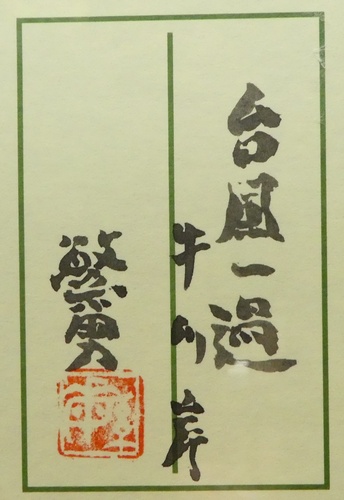 台風一過
牛川岸
繁男